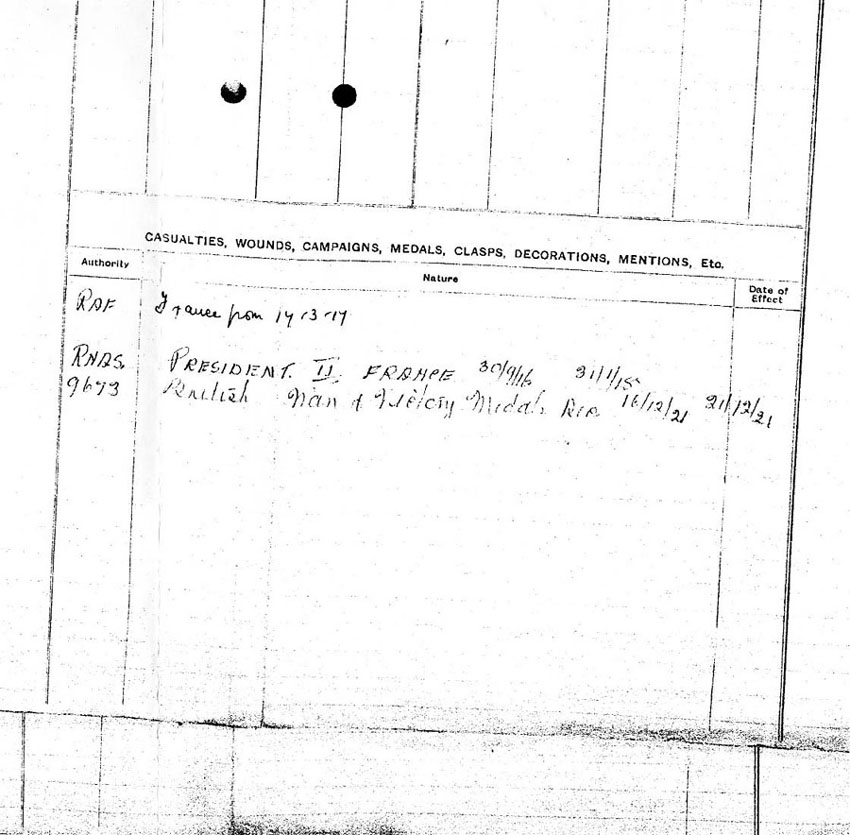 CASUALTIES, WOUNDS, CAMPAIGNS, MEDALS, CLASPS, DECORATIONS, MENTIONS, Etc.
Authority Nature Date of Effect
RAF France from 17-3-17
RNAS. PRESIDENT. II. FRANCE 30/9/16 31/1/18
9673 British War & Victory Medals 16/12/21 21/12/21